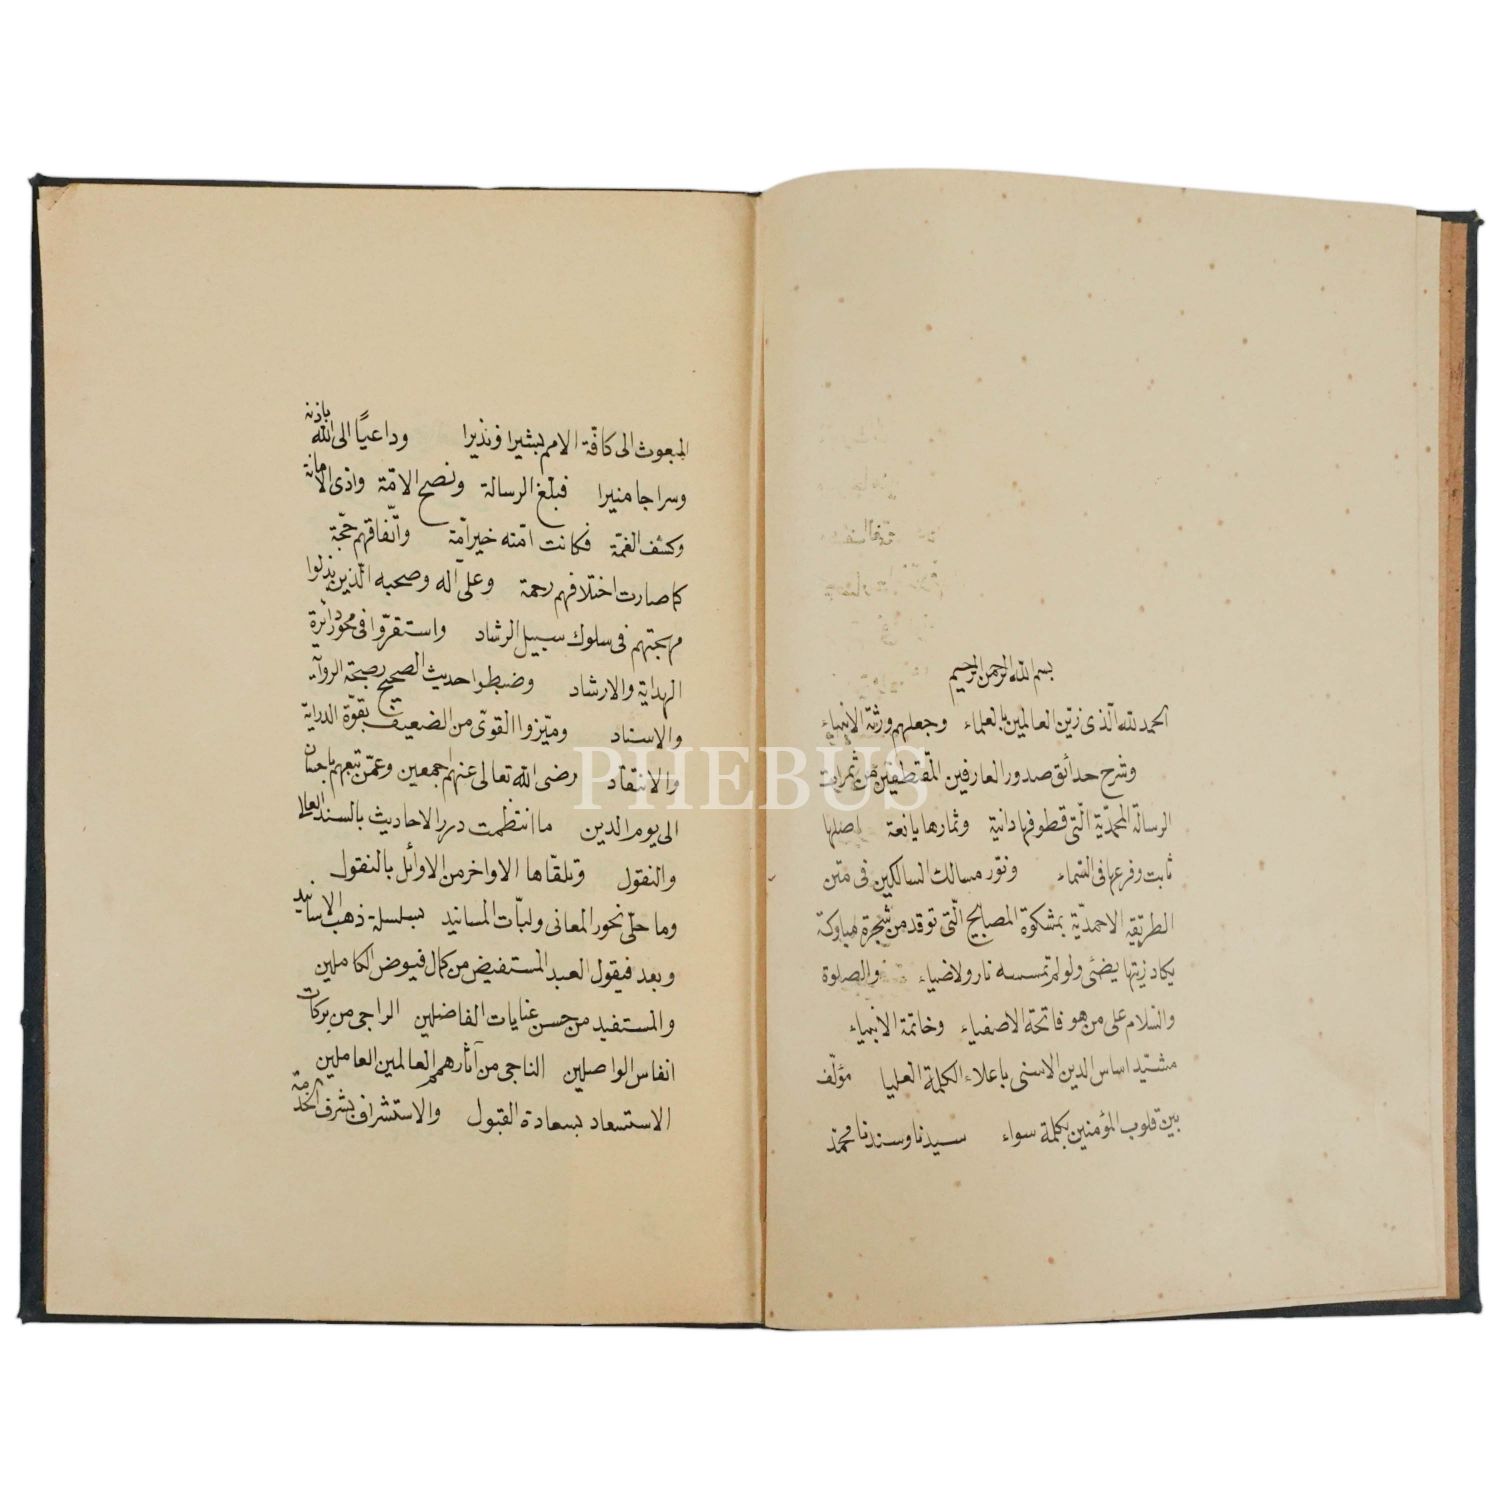 بسم الله الرحمن الرحيم
الحمد لله الّذى زيّن العالمين بالعلماء وجعلهم ورثة الانبياء
وشرح حدائق صدور العارفين المقتطفين من ثمرات
الرسالة المحمديّة الّتى قطوفها دانية وثمارها يانعة اصلها
ثابت وفرعها فى السّماء ونوّر مسالك السالكين فى متن
الطريقة الاحمديّة بمشكوة المصابيح الّتى توقد من شجرة مباركة
يكاد زيتها يضئ ولو لم تمسسه نار ولا ضياء والصلوة
والسّلام على من هو فاتحة الاصفياء وخاتمة الانبياء
مشيّد اساس الدين الاسنى باعلاء الكلمة العليا مؤلّف
بين قلوب المؤمنين بكلمة سواء سيدنا وسندنا محمّد
المبعوث الى كافّة الامم بشيرا ونذيرا وداعيًا الى الله باذنه
وسراجا منيرا فبلّغ الرسالة ونصح الامّة وادّى الامانة
وكشف الغمّة فكانت امّته خير امّة واتّفاقهم حجّة
كما صارت اختلافهم رحمة وعلى آله وصحبه الّذين بذلوا
مهجتهم فى سلوك سبيل الرشاد واستقرّوا فى محور دائرة
الهداية والارشاد وضبطوا حديث الصحيح بصحّة الرواية
والاسناد وميّزوا القوىّ من الضعيف بقوّة الدراية
والانتقاد رضى الله تعالى عنهم اجمعين وعمّن تبعهم باحسان
الى يوم الدين ما انتظمت درر الاحاديث بالسند العالى
والنقول وتلقّاها الاواخر من الاوائل بالنقول
وما حلّى نحور المعانى ولبّات المسانيد بسلسلة ذهب الاسانيد
وبعد فيقول العبد المستفيض من كمال فيوض الكاملين
والمستفيد من حسن عنايات الفاضلين الراجى من بركات
انفاس الواصلين الناجى من آثارهم العالمين العاملين
الاستسعاد بسعادة القبول والاستشراف بشرف الخدمة
PHEBUS